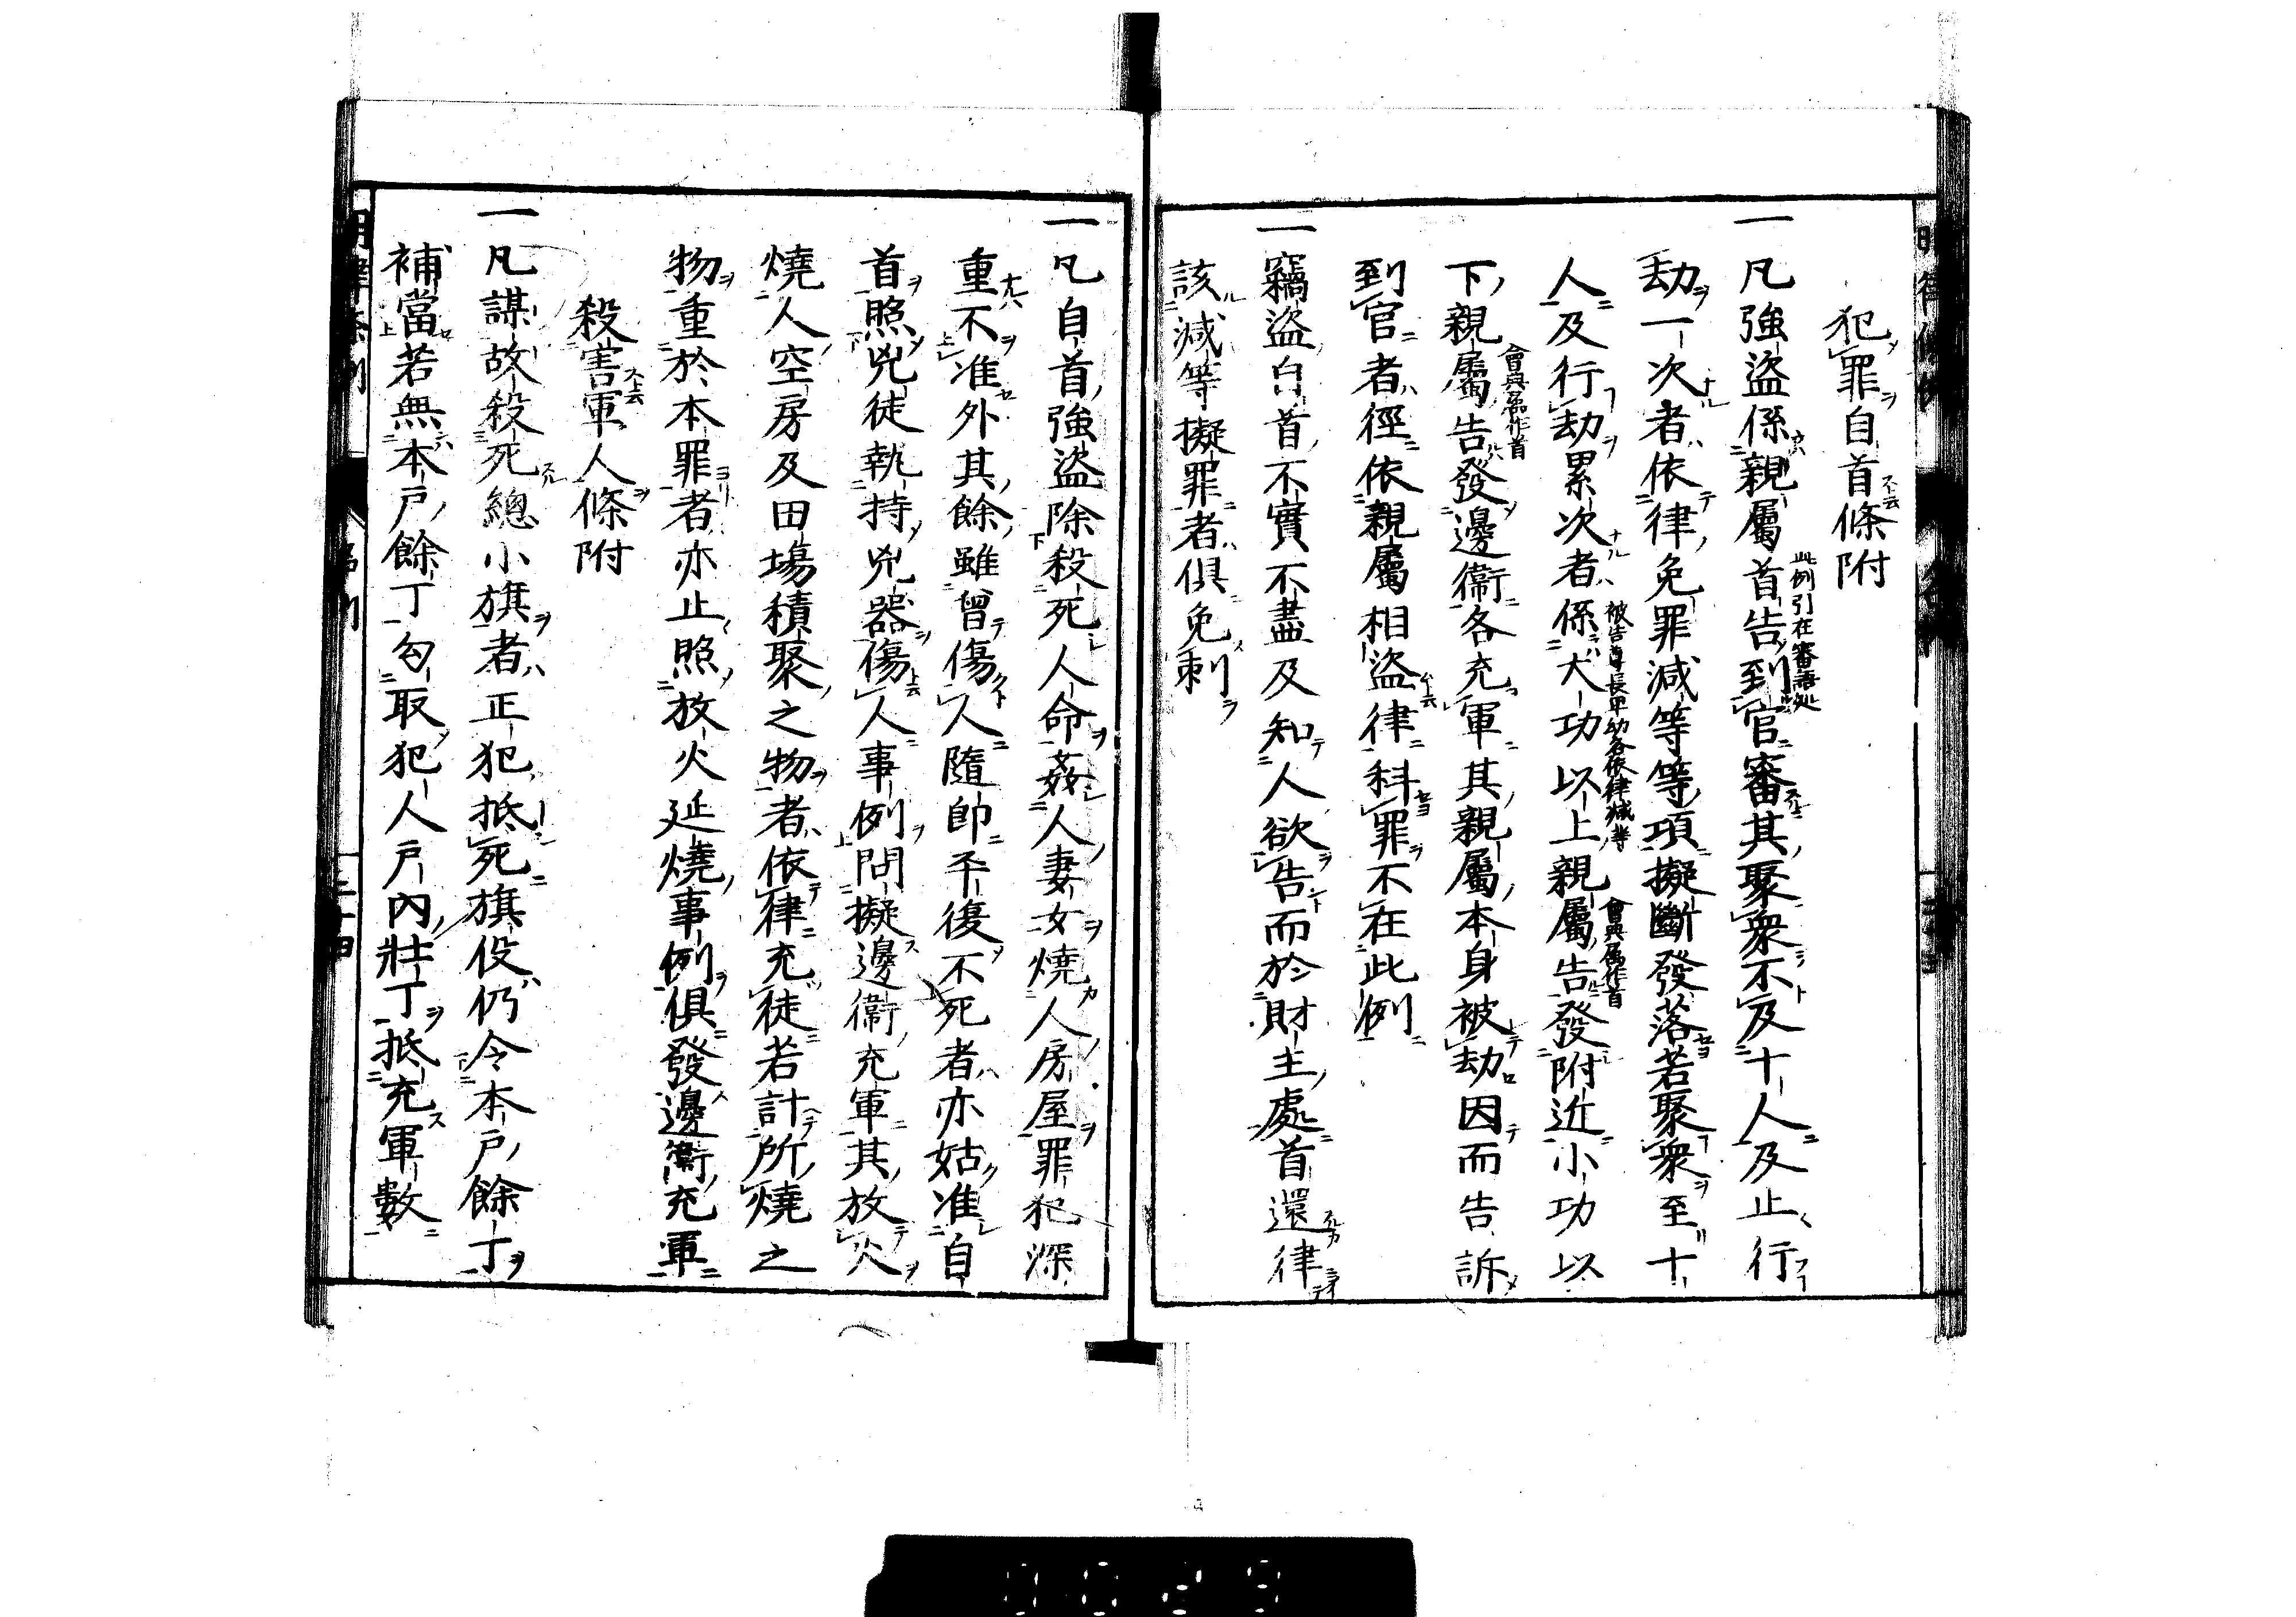 犯罪自首條附
一凡強盜係親屬首告到官審其聚衆不及十人及止行
此例引在審語処
劫一次者依律免罪減等等項擬斷發落若聚衆至十
人及行劫累次者係大功以上親屬告發附近小功以
被告尊長卑幼各依律減等
會典属作首
下親屬告發邊衞各充軍其親屬本身被劫因而告訴
會典屬作首
到官者徑依親屬相盜律科罪不在此例
一竊盜自首不實不盡及知人欲告而於財主處首還律
該減等擬罪者俱免刺
一凡自首強盜除殺死人命姦人妻女燒人房屋罪犯深
重不准外其餘雖曾傷人隨卽平復不死者亦姑准自
首照兇徒執持兇器傷人事例問擬邊衞充軍其放火
燒人空房及田塲積聚之物者依律充徒若計所燒之
物重於本罪者亦止照放火延燒事例俱發邊衞充軍
殺害軍人條附
一凡謀故殺死總小旗者正犯抵死旗役仍令本戶餘丁
補當若無本戶餘丁勾取犯人戶內壯丁抵充軍數